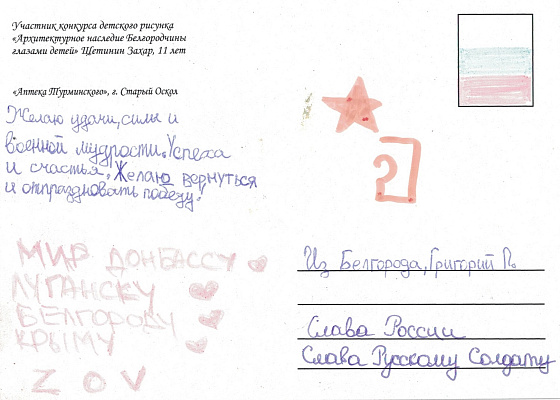 Участник конкурса детского рисунка
«Архитектурное наследие Белгородчины
глазами детей» Щетинин Захар, 11 лет
«Аптека Турминского», г. Старый Оскол
Желаю удачи, силы и
военной мудрости. Успеха
и счастья. Желаю вернуться
и отпраздновать победу!
МИР ДОНБАССУ
ЛУГАНСКУ
БЕЛГОРОДУ
КРЫМУ
Z O V
Из Белгорода, Григорий П.
Слава России
Слава Русскому Солдату